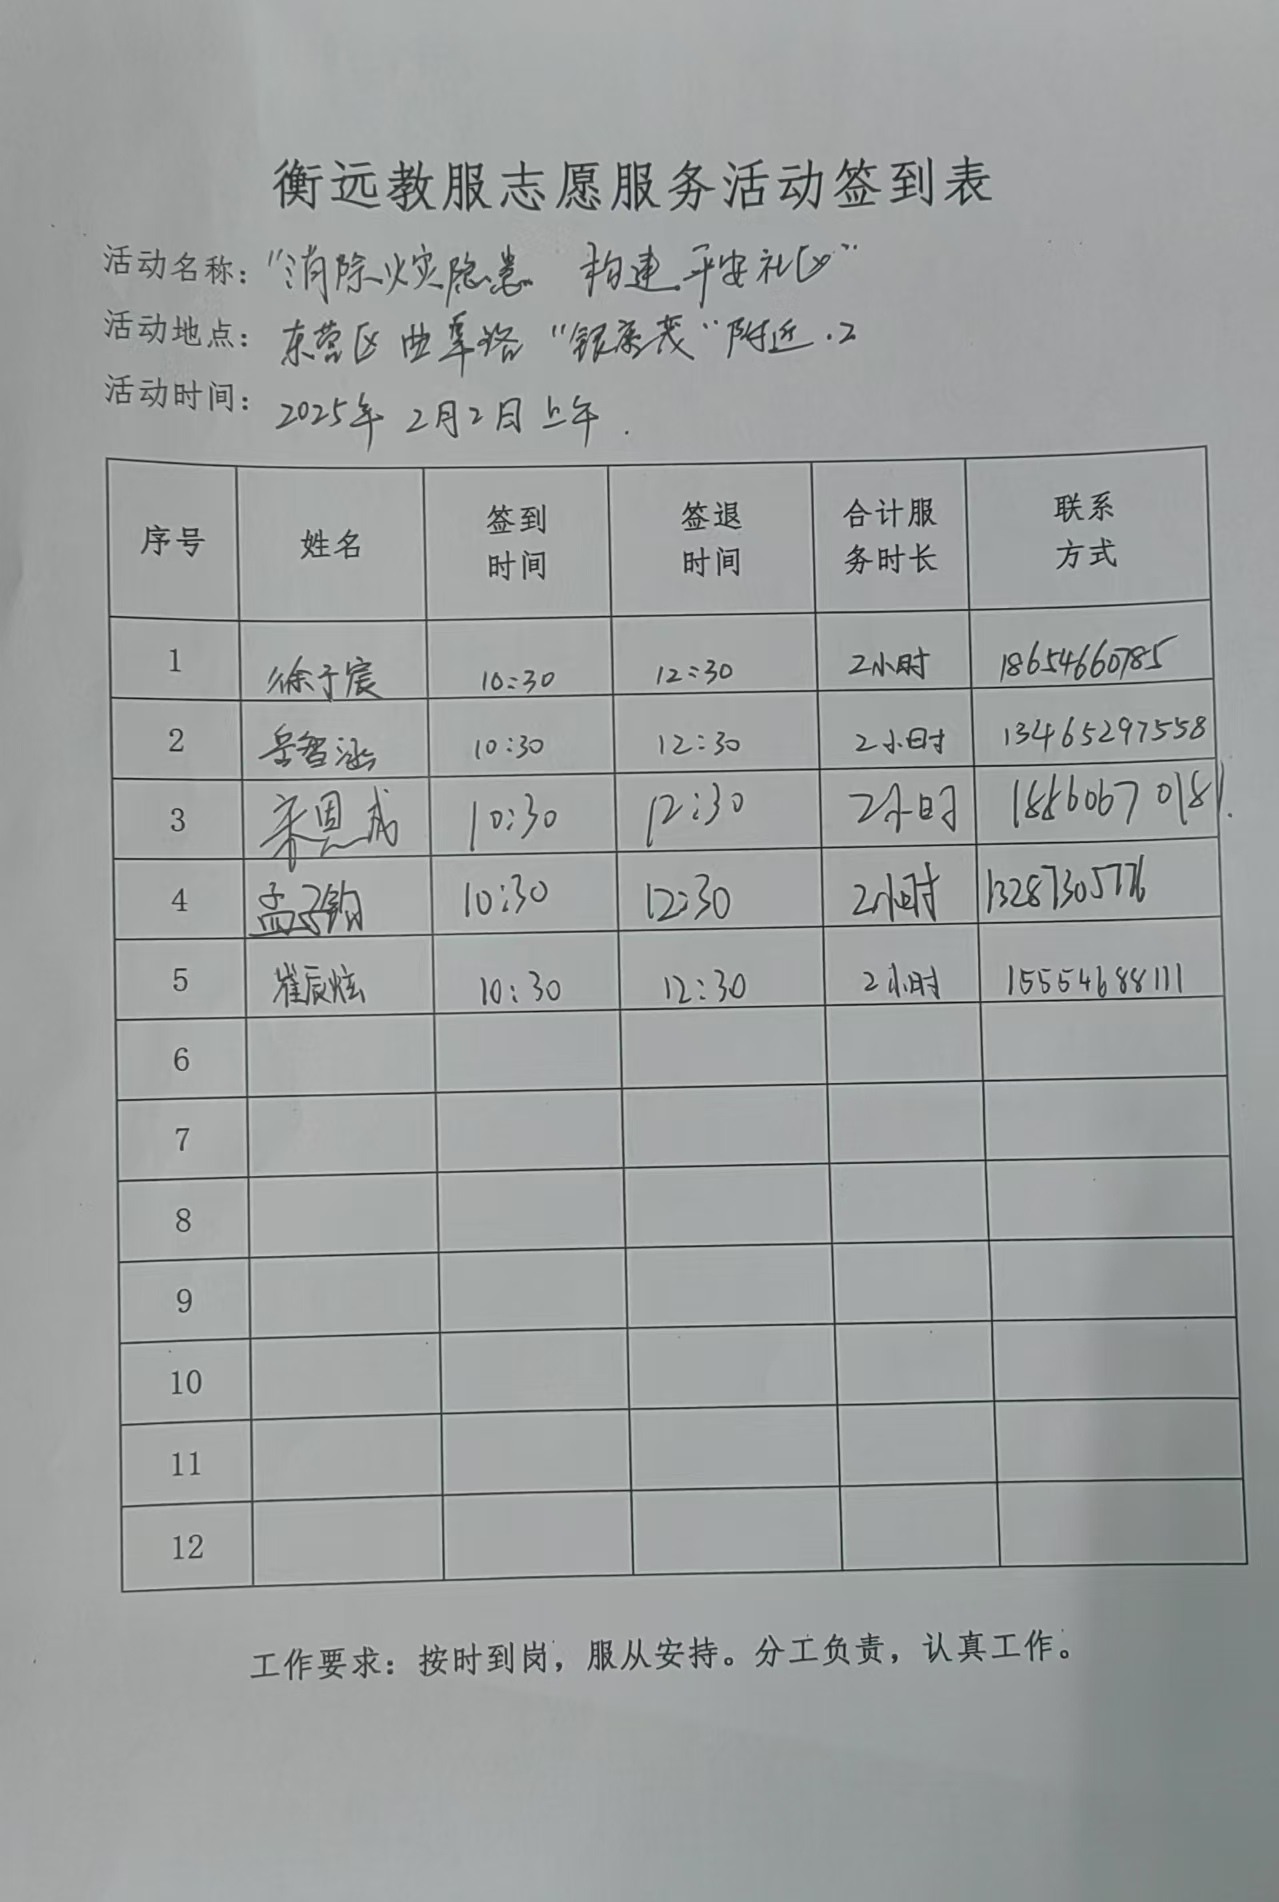 衡远教服志愿服务活动签到表
活动名称："消除火灾隐患 构建平安社区"
活动地点：东营区曲阜路"银座茂"附近.2
活动时间：2025年2月2日上午.
序号 姓名 签到时间 签退时间 合计服务时长 联系方式
1 徐于宸 10:30 12:30 2小时 18654660785
2 岳智涵 10:30 12:30 2小时 13465297558
3 宋恩成 10:30 12:30 2小时
4 孟子钧 10:30 12:30 2小时 13287305776
5 崔辰炫 10:30 12:30 2小时 15554688111
6
7
8
9
10
11
12
工作要求：按时到岗，服从安持。分工负责，认真工作。